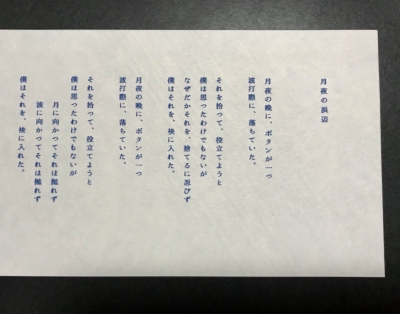 月夜の浜辺
月夜の晩に、ボタンが一つ
波打際に、落ちていた。
それを拾つて、役立てようと
僕は思つたわけでもないが
なぜだかそれを、捨てるに忍びず
僕はそれを、袂に入れた。
月夜の晩に、ボタンが一つ
波打際に、落ちていた。
それを拾つて、役立てようと
僕は思つたわけでもないが
月に向かつてそれは抛れず
波に向かつてそれは抛れず
僕はそれを、袂に入れた。